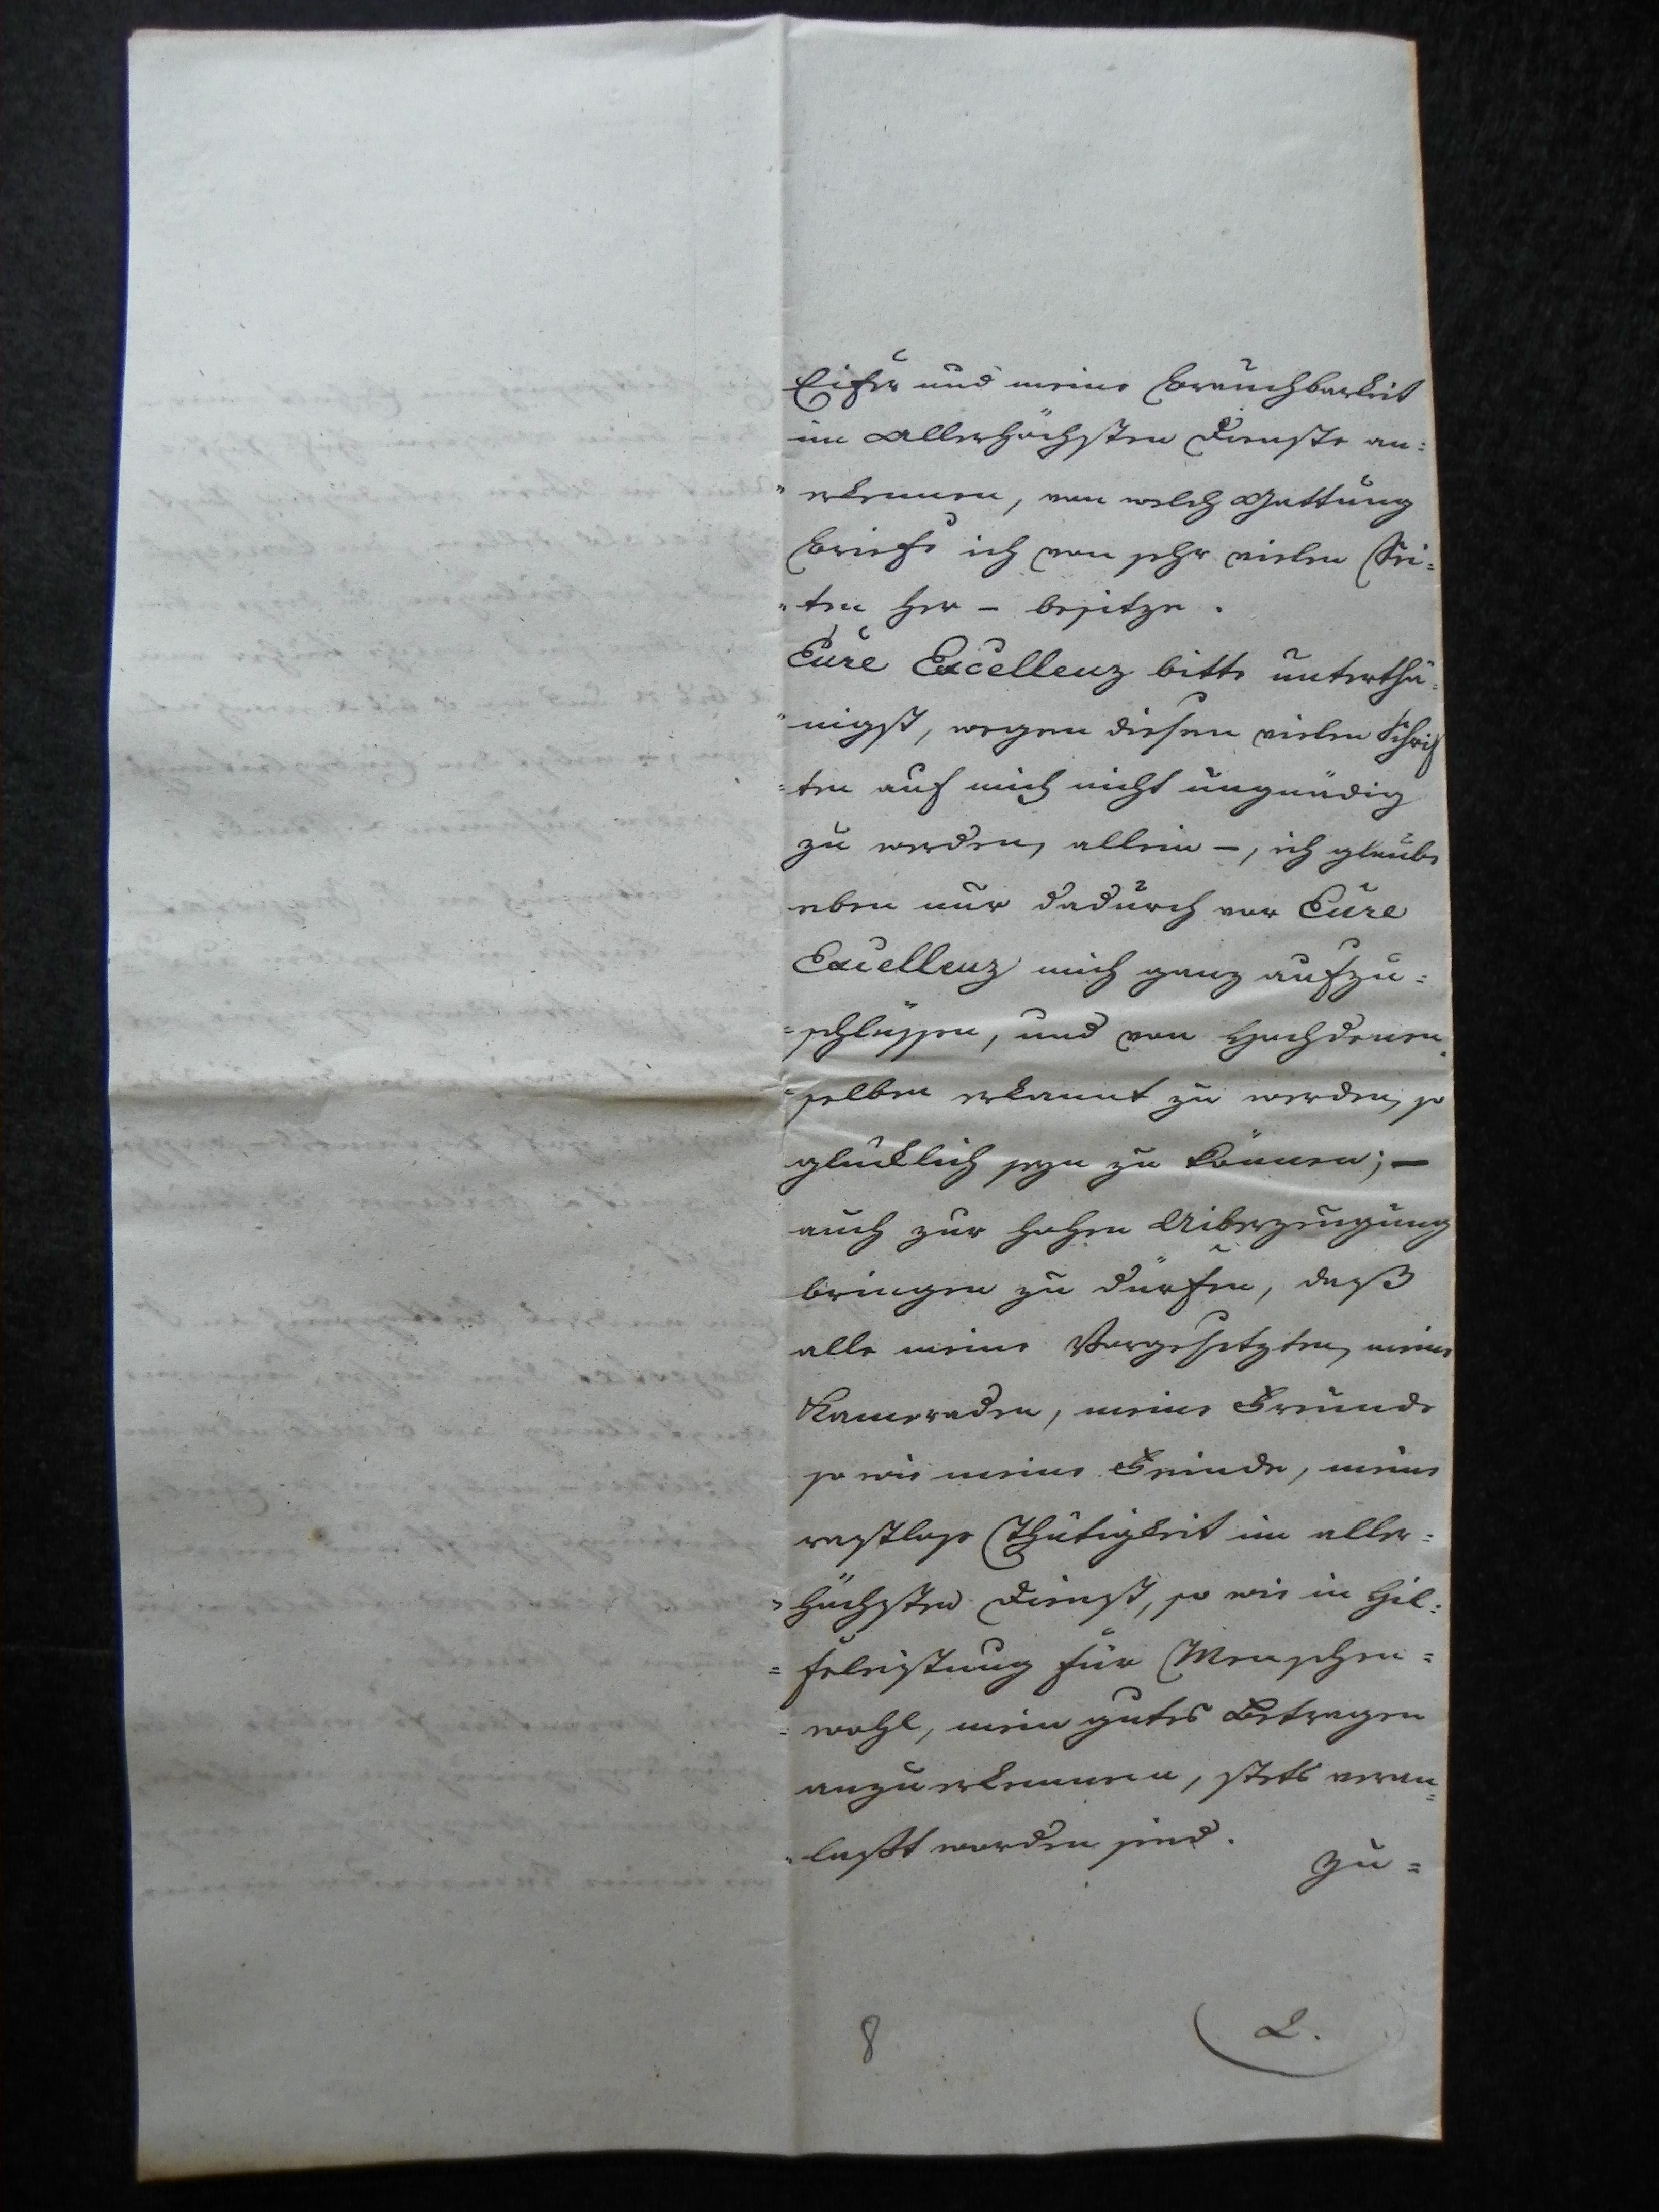 Eifer und meine Brauchbarkeit
im Allerhöchsten Dienste an=
"erkennen, von welch Gattung
Briefe ich von sehr vielen Sei=
"ten her – besitze.
Eure Excellenz bitte unterthä=
"nigst, wegen diesen vielen Schrif
=ten auf mich nicht ungnädig
zu werden, allein –, ich glaube
eben nur dadurch vor Eure
Excellenz mich ganz aufzu=
=schlüssen, und von Hochdenen=
=selben erkannt zu werden, so
glücklich seyn zu können; –
auch zur hohen Uiberzeugung
bringen zu dürfen, daß
alle meine Vorgesetzten, meine
Kameraden, meine Freunde
so wie meine Feinde, meine
rastlose Thätigkeit im aller=
"höchsten Dienst, so wie in Hil=
=feleistung für Menschen=
=wohl, mein gutes Betragen
anzuerkennen, stets veran=
"laßt worden sind.
Zu=
8
2.